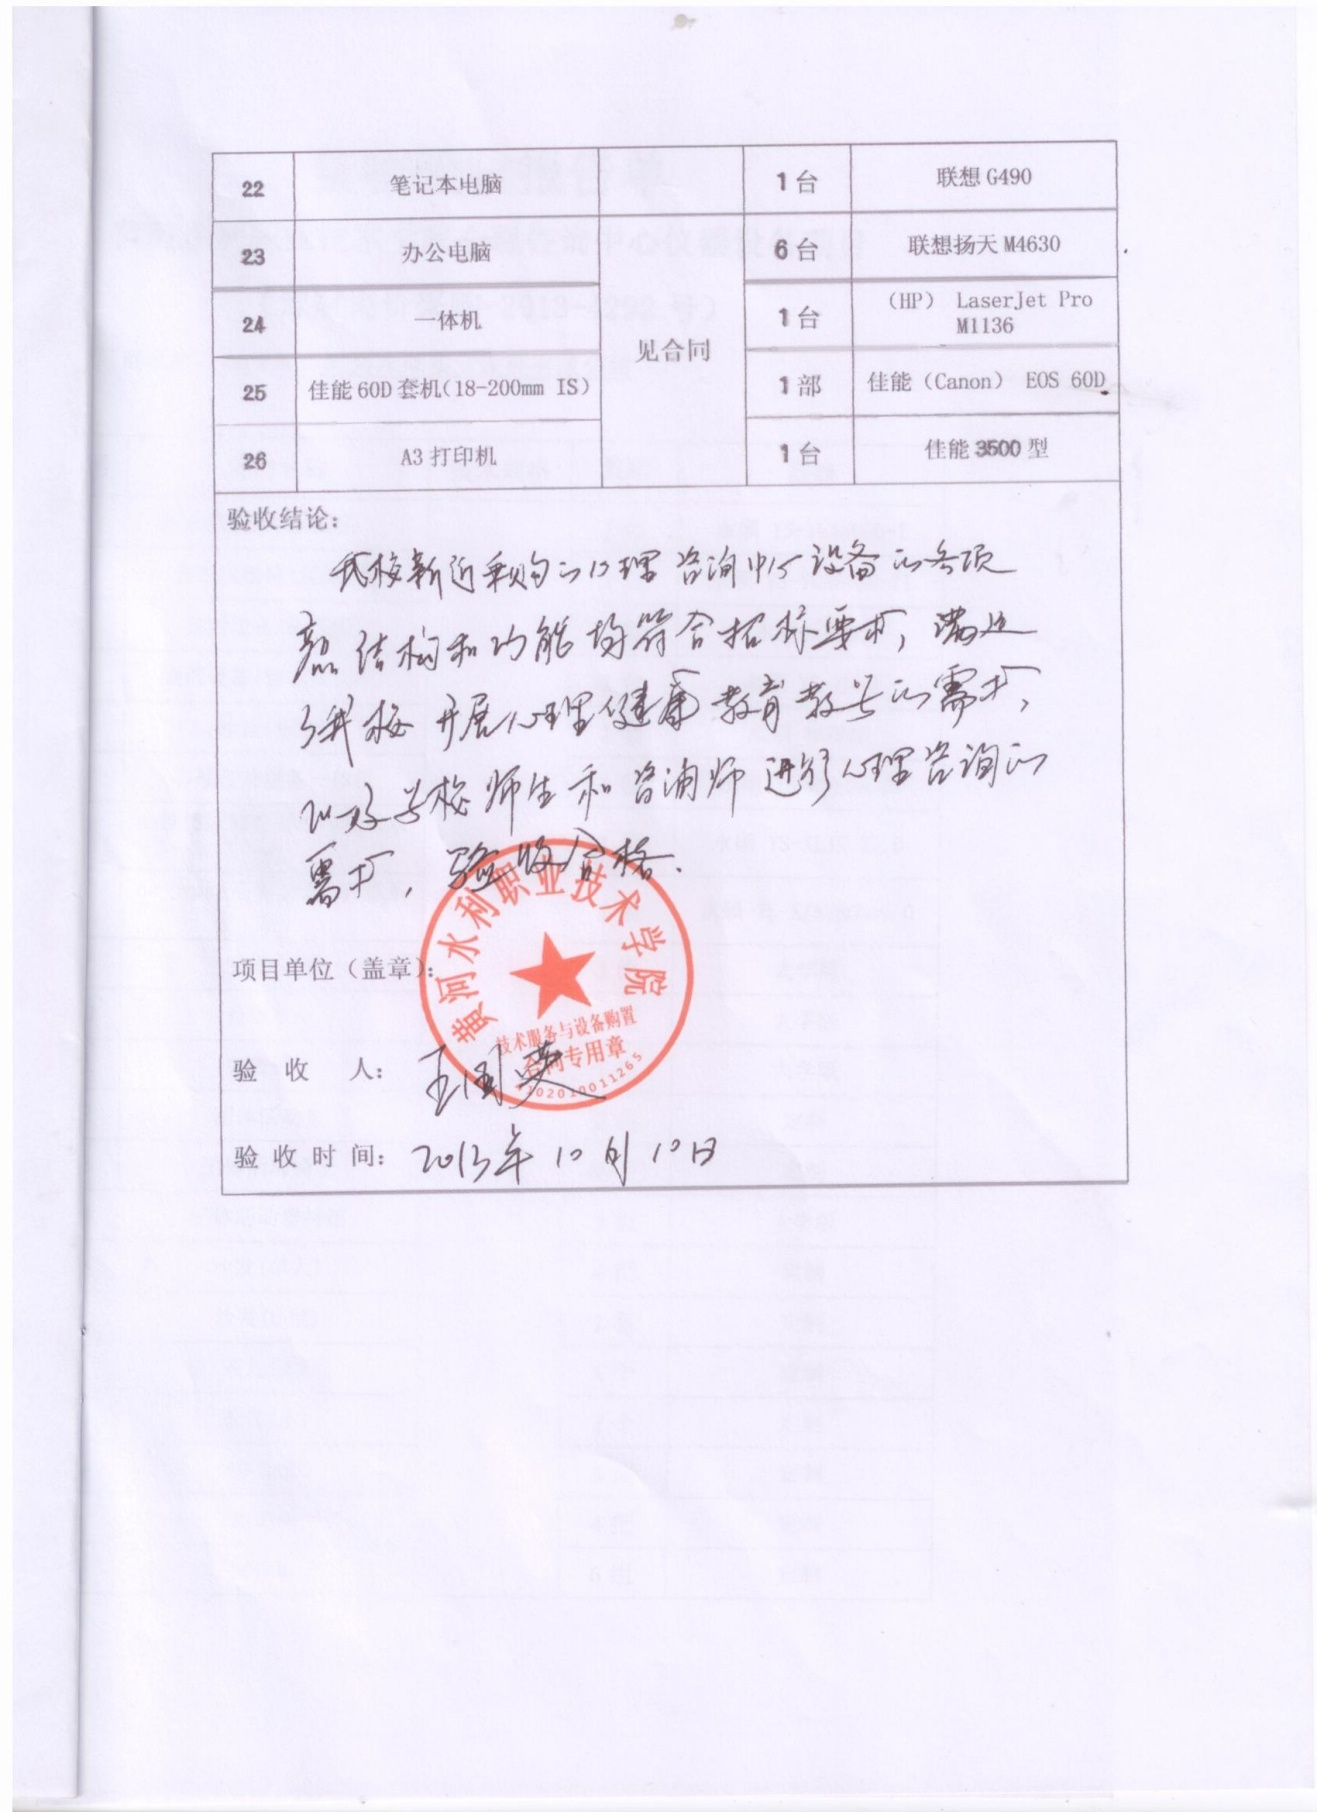 22 笔记本电脑 1台 联想 G490
23 办公电脑 6台 联想扬天 M4630
24 一体机 见合同 1台 (HP) LaserJet Pro M1136
25 佳能 60D 套机(18-200mm IS) 1部 佳能(Canon) EOS 60D
26 A3 打印机 1台 佳能 3500 型
验收结论:
我校新近采购的心理咨询中心设备的各项
结构和功能均符合招标要求,满足
我校开展心理健康教育教学的需求,
学校师生和咨询师进行心理咨询的
需求,验收合格.
黄河水利职业技术学院
项目单位(盖章):
技术服务与设备购置
合同专用章
验 收 人: 王国英
验 收 时 间: 2013年10月10日